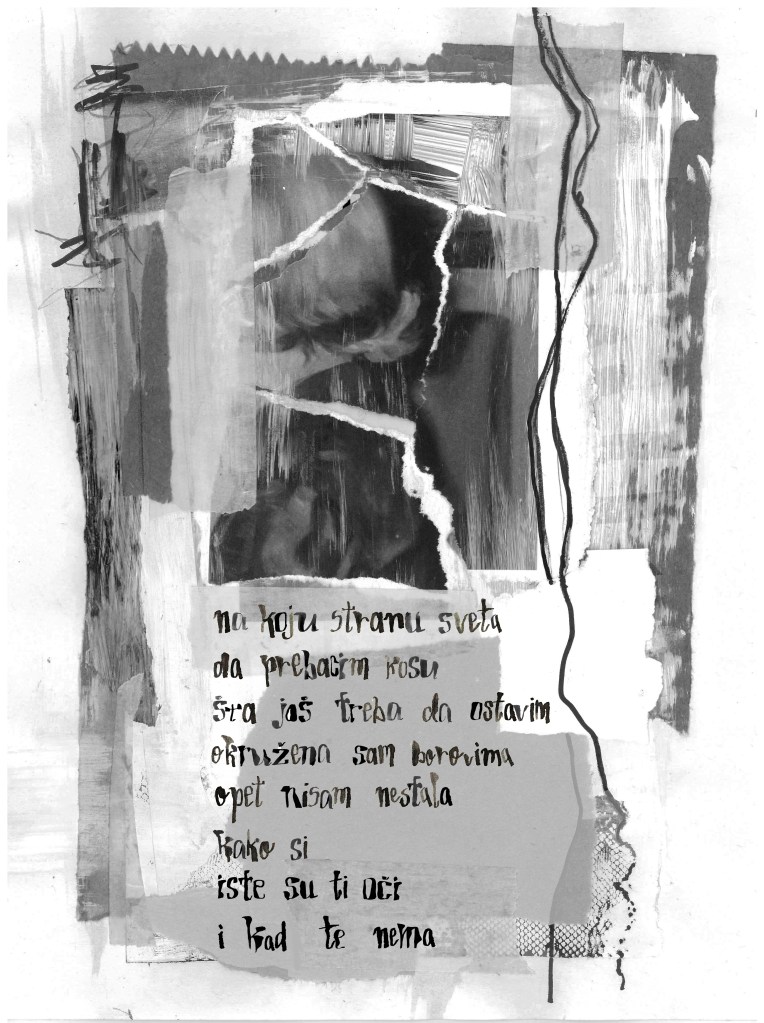 na koju stranu sveta
da prebacim kosu
šta još treba da ostavim
okružena sam borovima
opet nisam nestala
kako si
iste su ti oči
i kad te nema